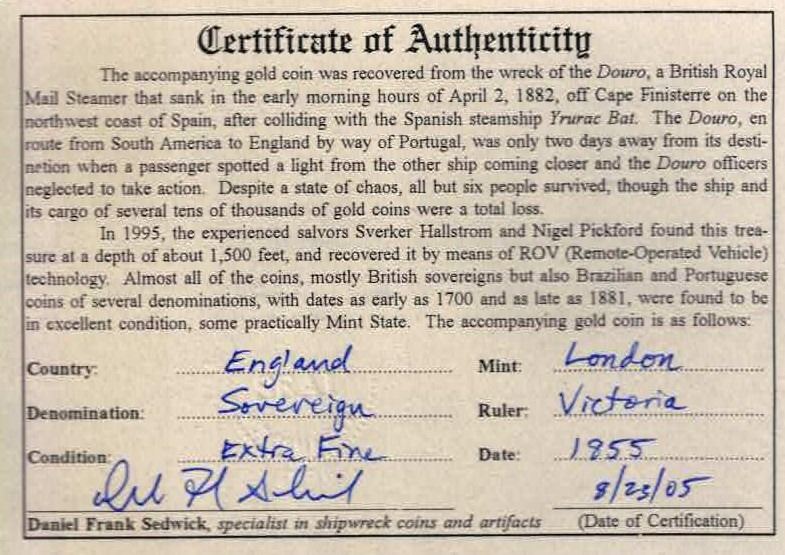 Certificate of Authenticity
The accompanying gold coin was recovered from the wreck of the Douro, a British Royal
Mail Steamer that sank in the early morning hours of April 2, 1882, off Cape Finisterre on the
northwest coast of Spain, after colliding with the Spanish steamship Yrurac Bat. The Douro, en
route from South America to England by way of Portugal, was only two days away from its desti-
nation when a passenger spotted a light from the other ship coming closer and the Douro officers
neglected to take action. Despite a state of chaos, all but six people survived, though the ship and
its cargo of several tens of thousands of gold coins were a total loss.
In 1995, the experienced salvors Sverker Hallstrom and Nigel Pickford found this trea-
sure at a depth of about 1,500 feet, and recovered it by means of ROV (Remote-Operated Vehicle)
technology. Almost all of the coins, mostly British sovereigns but also Brazilian and Portuguese
coins of several denominations, with dates as early as 1700 and as late as 1881, were found to be
in excellent condition, some practically Mint State. The accompanying gold coin is as follows:
Country: England Mint: London
Denomination: Sovereign Ruler: Victoria
Condition: Extra Fine Date: 1855
8/23/05
Daniel Frank Sedwick, specialist in shipwreck coins and artifacts (Date of Certification)